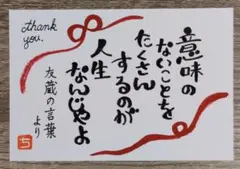 thank you,
意味の
ないことを
たくさん
するのが
人生
なんじゃよ
友蔵の言葉
より
ち